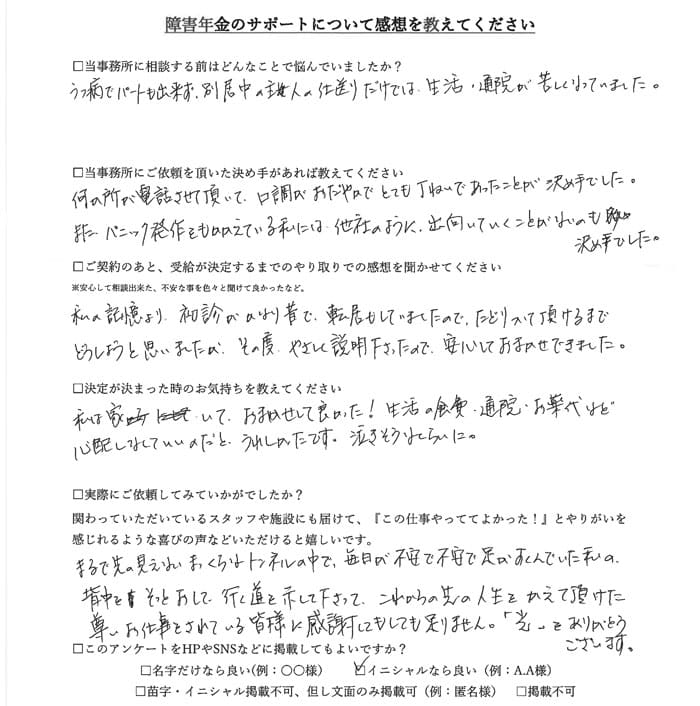 障害年金のサポートについて感想を教えてください
□当事務所に相談する前はどんなことで悩んでいましたか？
うつ病でパートも出来ず、別居中の主人の仕送りだけでは、生活・通院が苦しくなっていました。
□当事務所にご依頼を頂いた決め手があれば教えてください
何ヶ所か電話させて頂いて、口調がおだやかでとても丁ねいであったことが決め手でした。
また、パニック発作をもかかえている私には、他社のように、出向いていくことがないのも
決め手でした。
□ご契約のあと、受給が決定するまでのやり取りでの感想を聞かせてください
※安心して相談出来た、不安な事を色々と聞けて良かったなど。
私の記憶より、初診がかなり昔で、転居もしていましたので、たどりついて頂けるまで
どうしようと思いましたが、その度、やさしく説明下さったので、安心しておまかせできました。
□決定が決まった時のお気持ちを教えてください
私は家 いて、おまかせして良かった！生活の食費・通院・お薬代など
心配しなくていいのだと、うれしかったです。泣きそうなくらいに。
□実際にご依頼してみていかがでしたか？
関わっていただいているスタッフや施設にも届けて、『この仕事やっててよかった！』とやりがいを
感じれるような喜びの声などいただけると嬉しいです。
まるで先の見えないまっくらなトンネルの中で、毎日が不安で不安で足がすくんでいた私の、
背中をそっとおして、行く道を示して下さって、これからの先の人生をかえて頂けた
尊いお仕事をされている皆様に感謝してもしても足りません。「光」をありがとう
ございます。
□このアンケートをHPやSNSなどに掲載してもよいですか？
□名字だけなら良い(例：〇〇様） ☑イニシャルなら良い（例：A.A様）
□苗字・イニシャル掲載不可、但し文面のみ掲載可（例：匿名様） □掲載不可